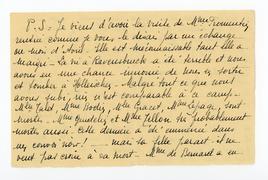 P.S. Je viens d'avoir la visite de Mme
rentrée comme je vous le disais par un échange
au mois d'Avril. Elle est méconnaissable tant elle a
maigri. La vie à Ravensbruck a été terrible et nous
avons eu une chance énorme de nous en sortir
et tomber à Holleischen. Malgré tout ce que nous
avons subi, rien n'est comparable à ce camp.
Mmes Talet, Mme Bodin, Mme Gracet, Mme Lepage, sont
mortes. Mme et Mme Fillon très probablement
mortes aussi. Cette dernière a été emmenée dans
un convoi noir! mais sa fille paraît-il ne
veut pas croire à sa mort. Mme de Bernard a eu